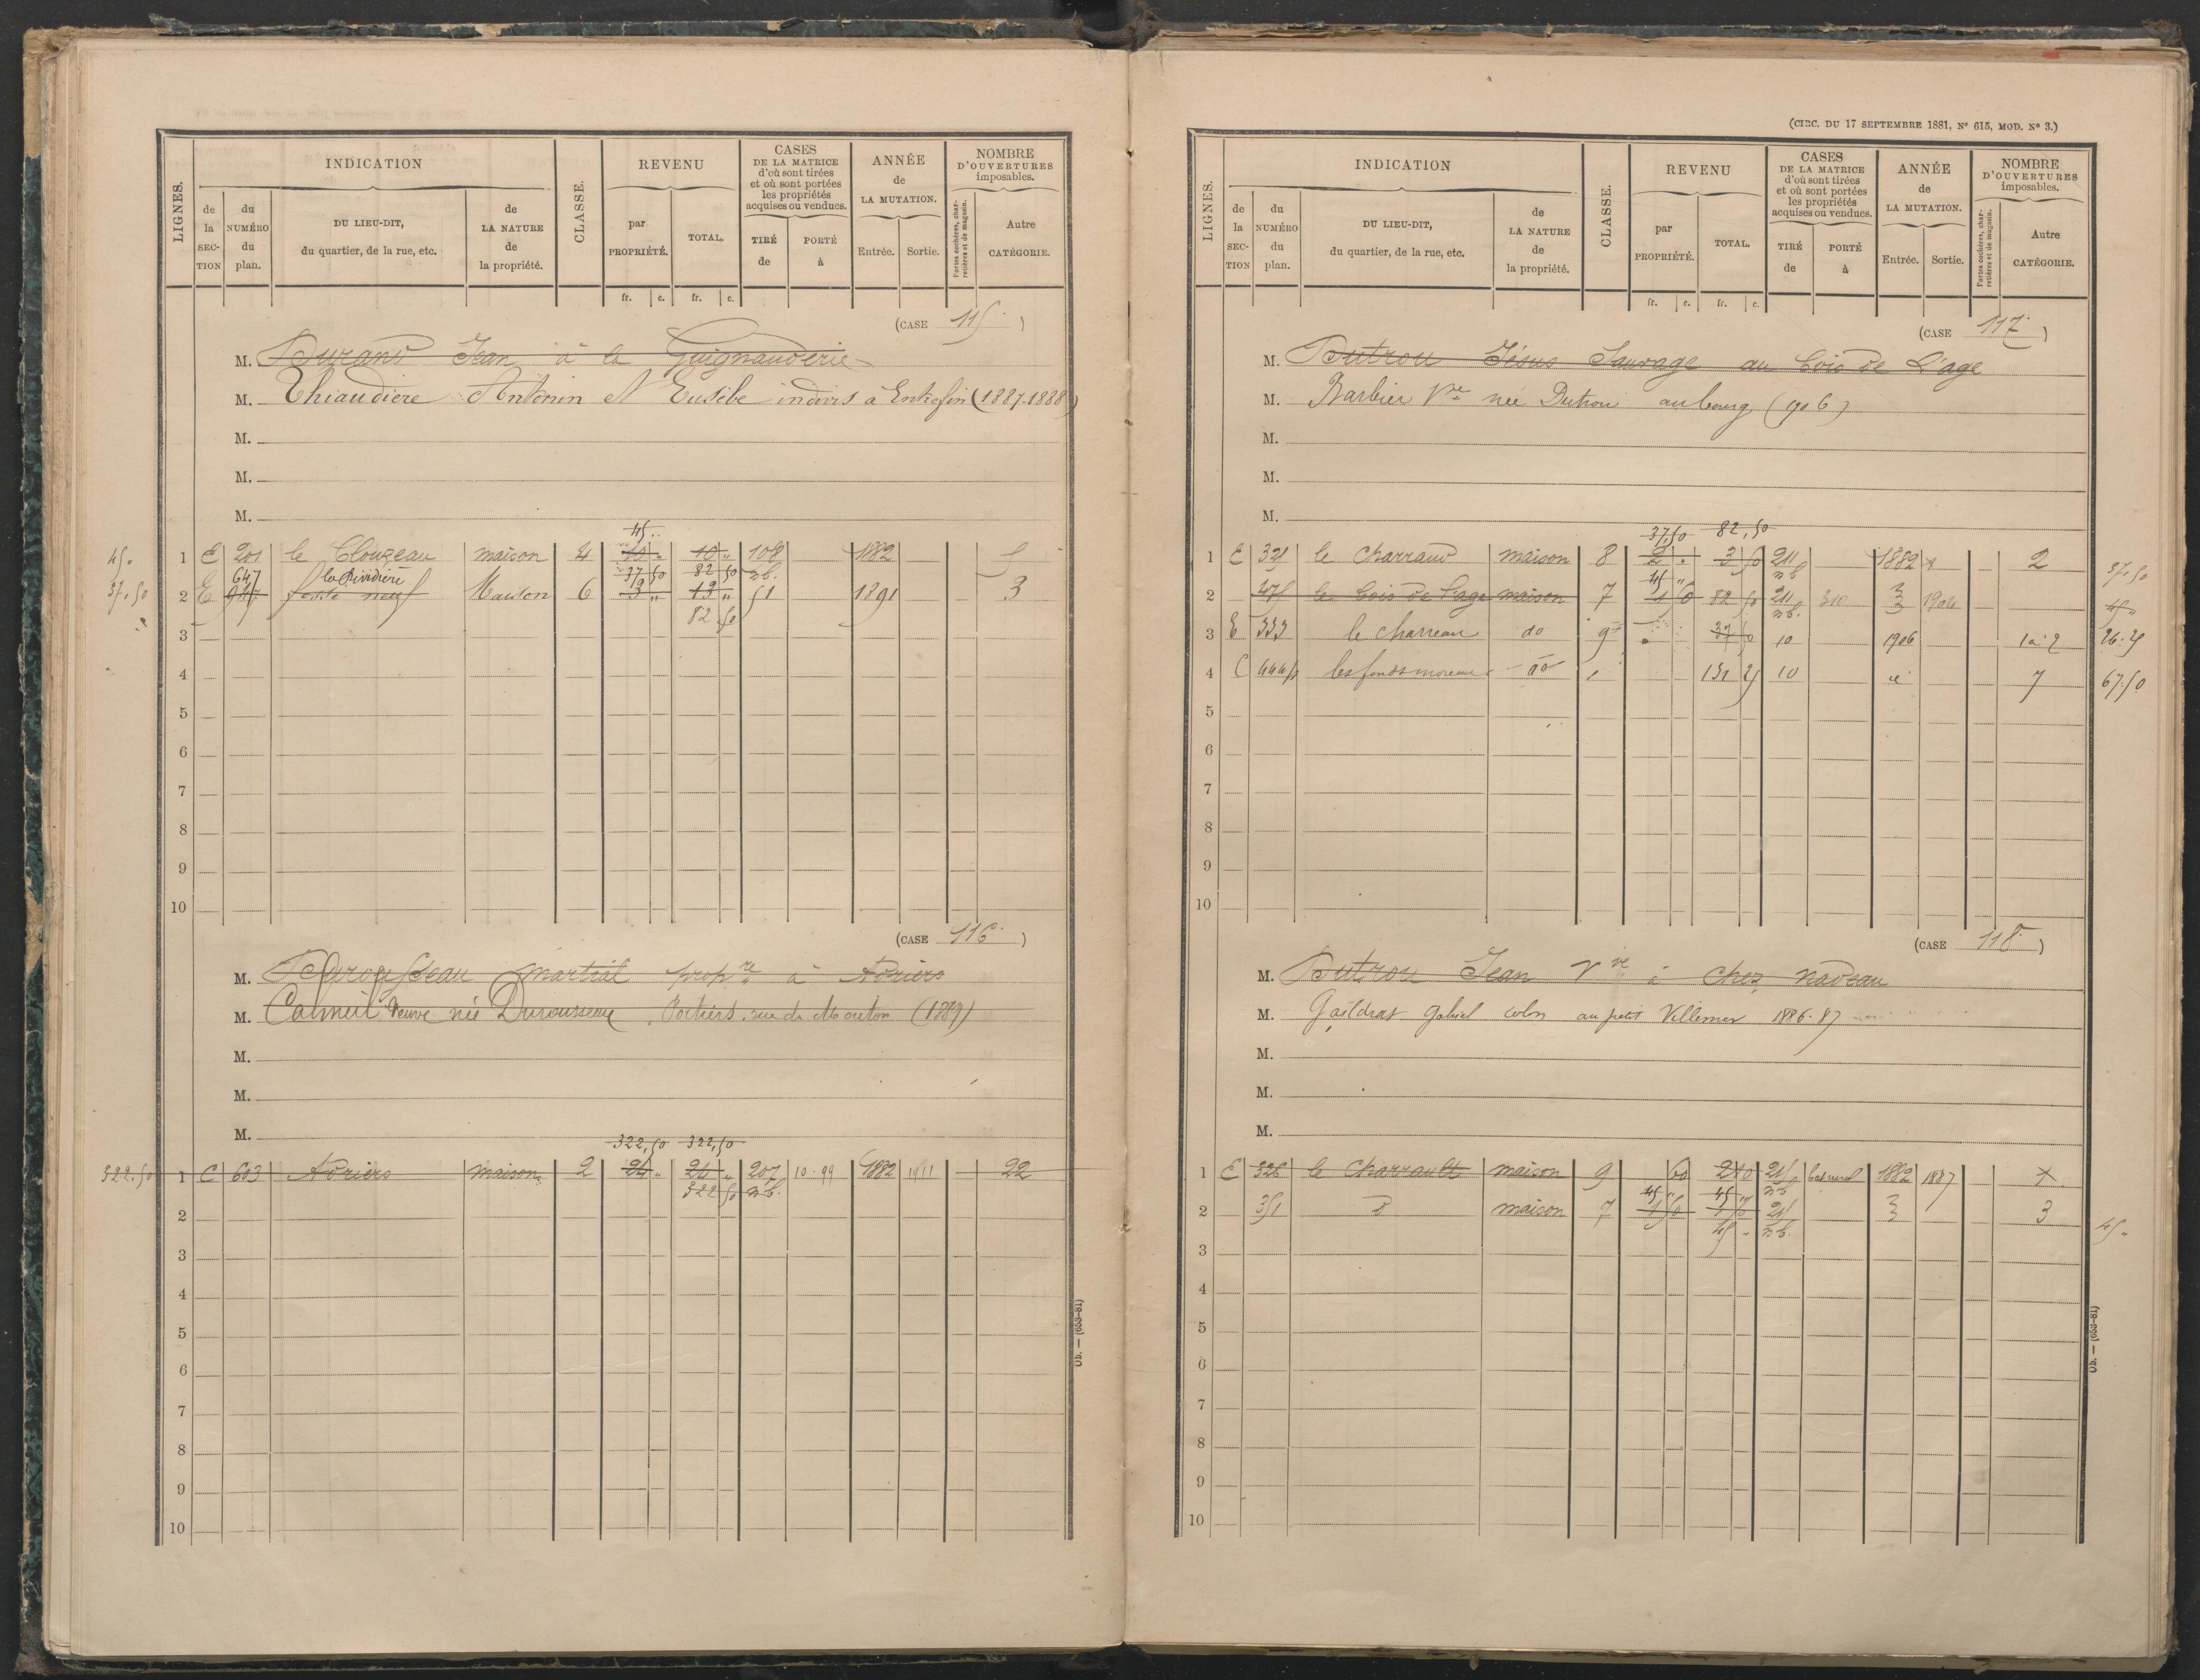 LIGNES.
INDICATION
de la SEC- TION
du NUMÉRO du plan.
DU LIEU-DIT, du quartier, de la rue, etc.
de LA NATURE de la propriété.
CLASSE.
REVENU
par PROPRIÉTÉ.
TOTAL.
fr. c. fr. c.
CASES DE LA MATRICE d'où sont tirées et où sont portées les propriétés acquises ou vendues.
TIRÉ de
PORTÉ à
ANNÉE de LA MUTATION.
Entrée. Sortie.
NOMBRE D'OUVERTURES imposables.
Portes cochères, charretières et de magasin.
Autre CATÉGORIE.
(CASE 115 )
M. Durand Jean à la Guignauderie
M. Thiaudière Antonin et Eusèbe indivis à Entrefin (1887-1888)
M.
M.
M.
45 ..
45 „ 1 E 201 le Clouzeau maison 4 10 „ 10 „ 108 1882 5
647 la Rividière 37 50 82 50 n b.
37.50 2 E 947 maison 6 3 „ 13 „ 51 1891 3
82 50
3
4
5
6
7
8
9
10
(CASE 116 )
M. Durousseau Martial prop.re à Adriers
M. Calmeil veuve née Durousseau Poitiers, rue du Mouton (1889)
M.
M.
M.
322,50 322,50
322.50 1 C 603 Adriers maison 2 24 „ 24 „ 207 10-99 1882 1911 22
322 50 n b.
2
3
4
5
6
7
8
9
10
Ob. — (653-81)
(CIRC. DU 17 SEPTEMBRE 1881, N° 615, MOD. N° 3.)
LIGNES.
INDICATION
de la SEC- TION
du NUMÉRO du plan.
DU LIEU-DIT, du quartier, de la rue, etc.
de LA NATURE de la propriété.
CLASSE.
REVENU
par PROPRIÉTÉ.
TOTAL.
fr. c. fr. c.
CASES DE LA MATRICE d'où sont tirées et où sont portées les propriétés acquises ou vendues.
TIRÉ de
PORTÉ à
ANNÉE de LA MUTATION.
Entrée. Sortie.
NOMBRE D'OUVERTURES imposables.
Portes cochères, charretières et de magasin.
Autre CATÉGORIE.
(CASE 117 )
M. Dutrou Jésus Sauvage au bois de L'age
M. Barbier Vve née Dutrou au bourg (1906)
M.
M.
M.
37,50 82,50
1 E 321 le Charraud maison 8 2 „ 3 50 211 1882 2 37.50
45 „ n b
2 475 le bois de l'age maison 7 1 50 82 50 211 310 1904 45 „
n b.
3 E 333 le charreau do 9 37 50 10 1906 1 a 2 26.25
4 C 444p les fonds moreau do 131 25 10 7 67.50
5
6
7
8
9
10
(CASE 118 )
M. Dutrou Jean Vve à Chez nadeau
M. Gaildrat Gabriel colon au petit Villemer 1886-87
M.
M.
M.
1 E 326 le Charrault maison 9 60 2 10 211 1882 1887
45 „ 45 „ n b
2 351 maison 7 1 50 1 50 211 3 45 „
45 „ n b.
3
4
5
6
7
8
9
10
Ob. — (653-81)